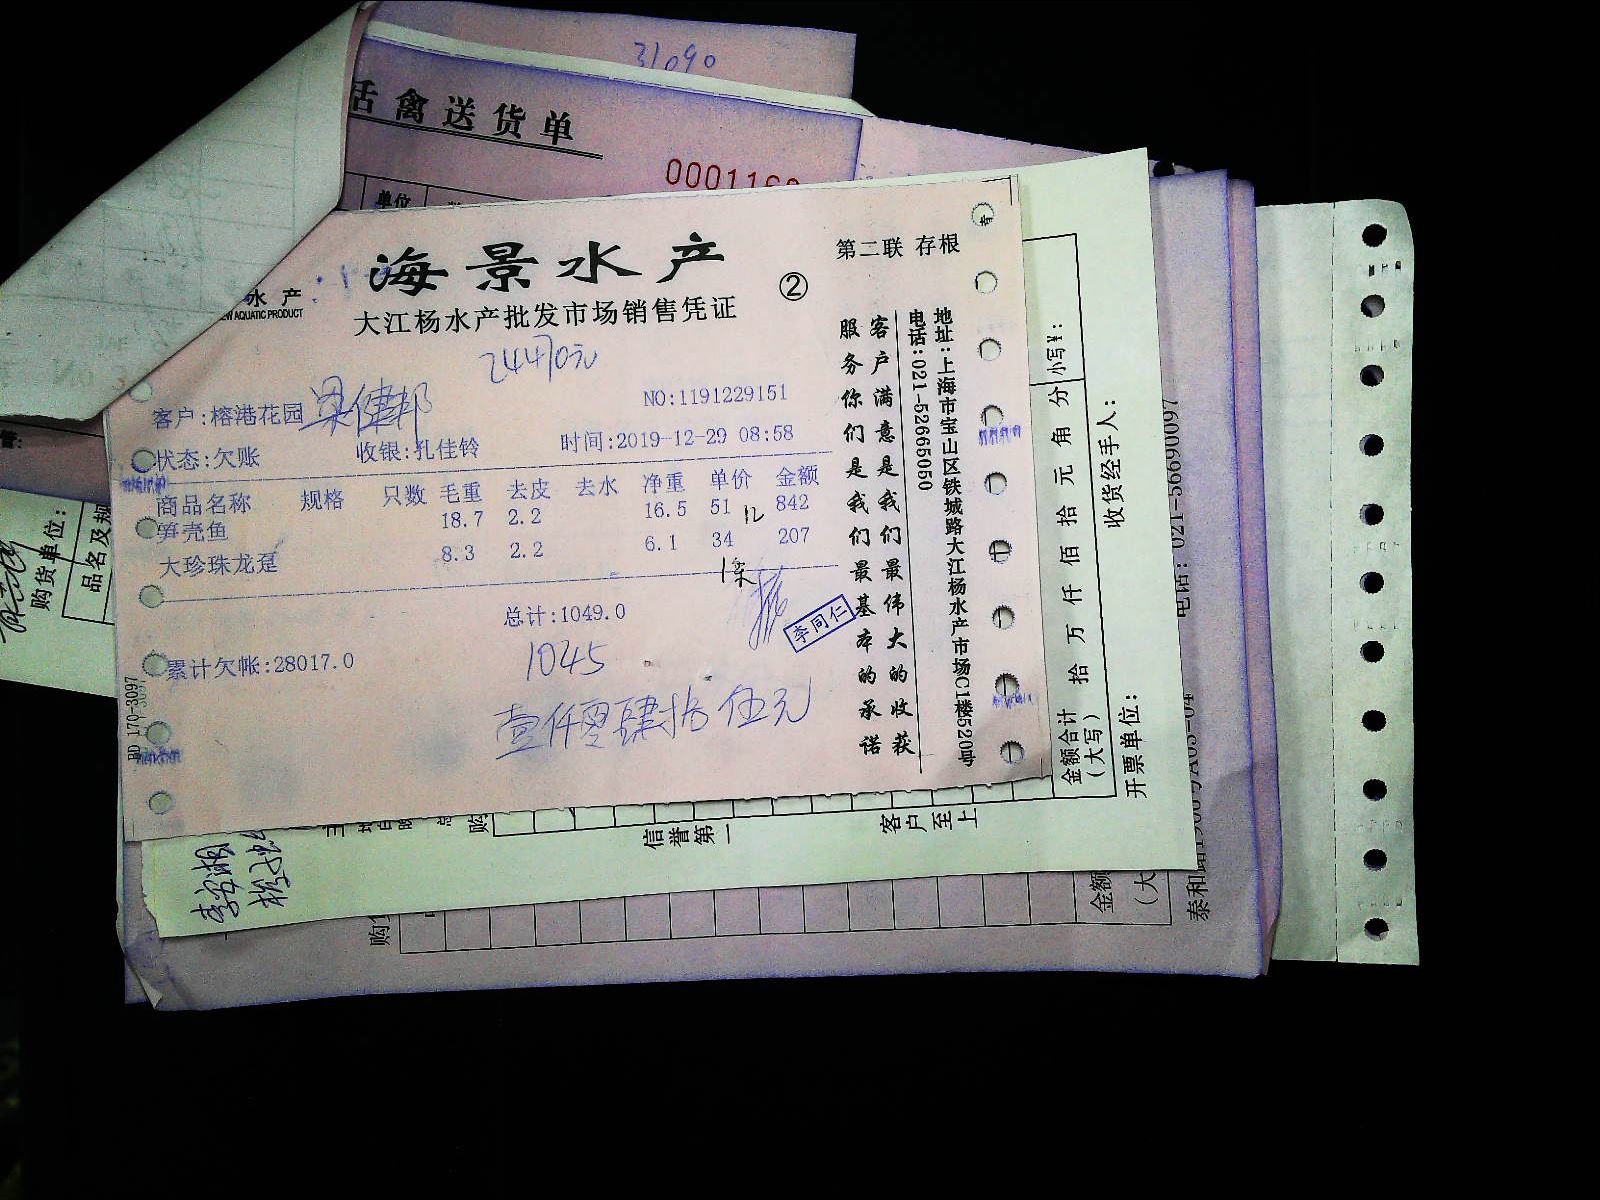 31090
活禽送货单
单位
水产
AQUATIC PRODUCT
海景水产
大江杨水产批发市场销售凭证
②
第二联 存根
24470元
客户:榕港花园
梁健邦
NO:1191229151
状态:欠账 收银:孔佳铃 时间:2019-12-29 08:58
商品名称 规格 只数 毛重 去皮 去水 净重 单价 金额
笋壳鱼 18.7 2.2 16.5 51 842
大珍珠龙趸 8.3 2.2 6.1 34 207
1条
总计:1049.0
李同仁
累计欠帐:28017.0
1045
壹仟零肆拾伍元
客户满意是我们最伟大的收获
服务你们是我们最基本的承诺
地址:上海市宝山区铁城路大江杨水产市场C1楼520号
电话:021-52665050
BD 170-3097
小写¥:
金额合计(大写) 拾 万 仟 佰 拾 元 角 分
收货经手人:
开票单位:
电话: 021-56690097
购货单位:
品名及规
信誉第一
客户至上
购
金额
(大
泰和路